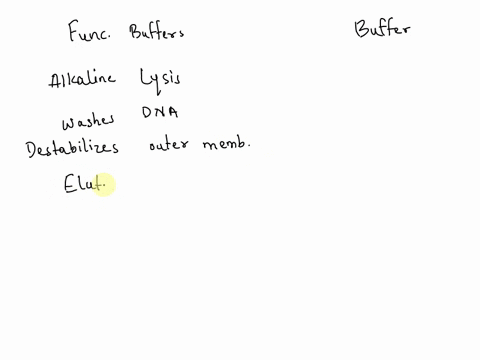 Func. Buffers Buffer
Alkaline Lysis
Washes DNA
Destabilizes outer memb.
Elut.